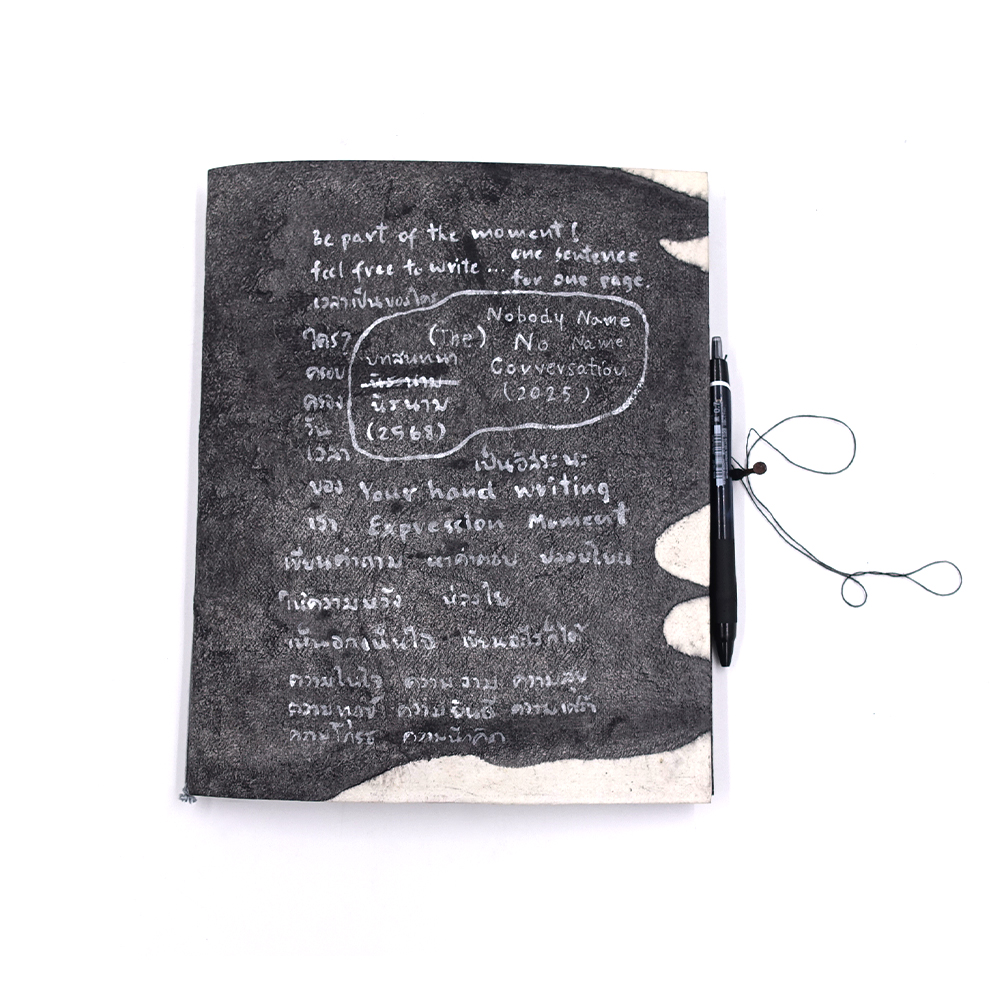 Be part of the moment!
feel free to write... one sentence
for one page.
เวลาเป็นของใคร
ใคร?
ครอบ
ครอง
วัน
เวลา
ของ
เรา
Nobody Name
(The) No Name
Conversation
(2025)
บทสนทนา
นิรนาม
นิรนาม
(2568)
เป็นอิสระนะ
Your hand writing
Expression Moment
เขียนคำถาม หาคำตอบ ปลอบโยน
ให้ความหวัง
ความในใจ ความงาม ความสุข
ความทุกข์ ความยินดี ความเศร้า
ความโกรธ ความนึกคิด